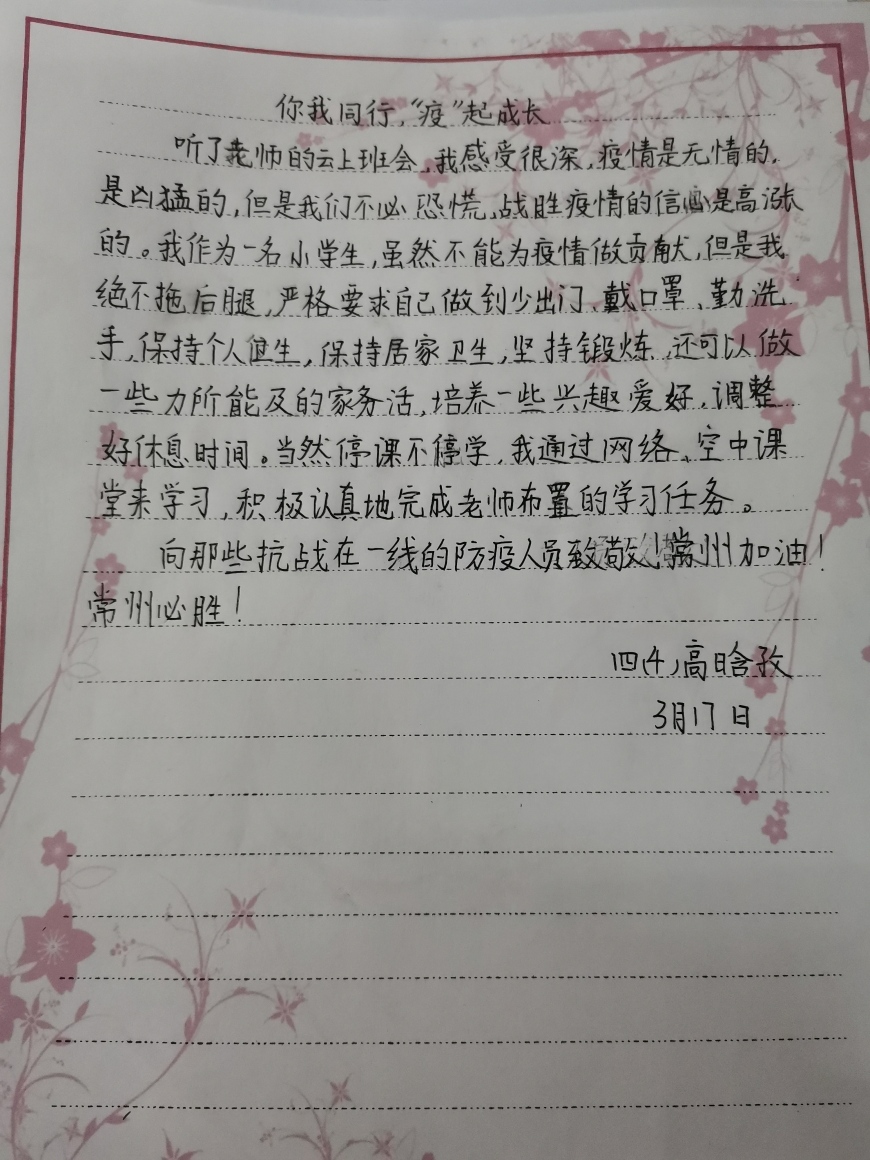 你我同行，“疫”起成长
听了老师的云上班会，我感受很深，疫情是无情的，
是凶猛的，但是我们不必恐慌，战胜疫情的信心是高涨
的。我作为一名小学生，虽然不能为疫情做贡献，但是我
绝不拖后腿，严格要求自己做到少出门、戴口罩、勤洗
手，保持个人卫生，保持居家卫生，坚持锻炼，还可以做
一些力所能及的家务活，培养一些兴趣爱好，调整
好休息时间。当然停课不停学，我通过网络、空中课
堂来学习，积极认真地完成老师布置的学习任务。
向那些抗战在一线的防疫人员致敬！常州加油！
常州必胜！
四（4）高晗孜
3月17日